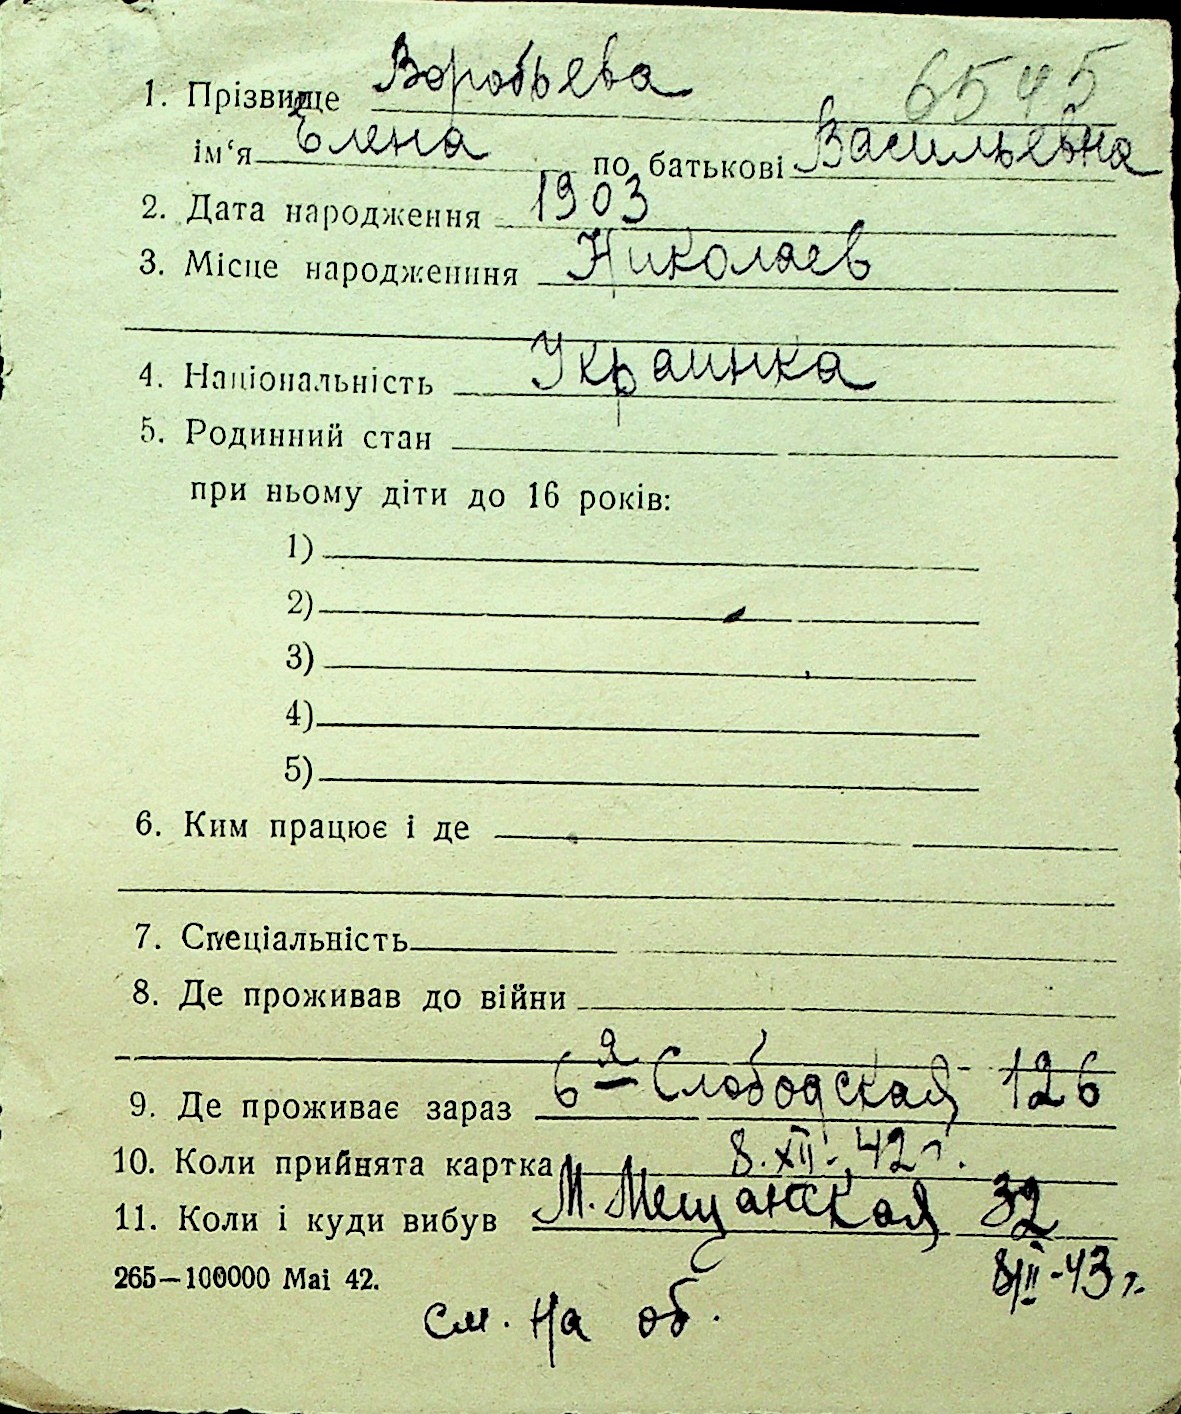 6545
1. Прізвище Воробьева
ім‘я Елена по батькові Васильевна
2. Дата народження 1903
3. Місце народжениня Николаев
4. Національність Украинка
5. Родинний стан
при ньому діти до 16 років:
1)
2)
3)
4)
5)
6. Ким працює і де
7. Спеціальність
8. Де проживав до війни
9. Де проживає зараз 6я Слободская 126
10. Коли прийнята картка 8.XII.42 г.
11. Коли і куди вибув М. Мещанская 32
265—100000 Mai 42. 8/II-43 г.
см. на об.